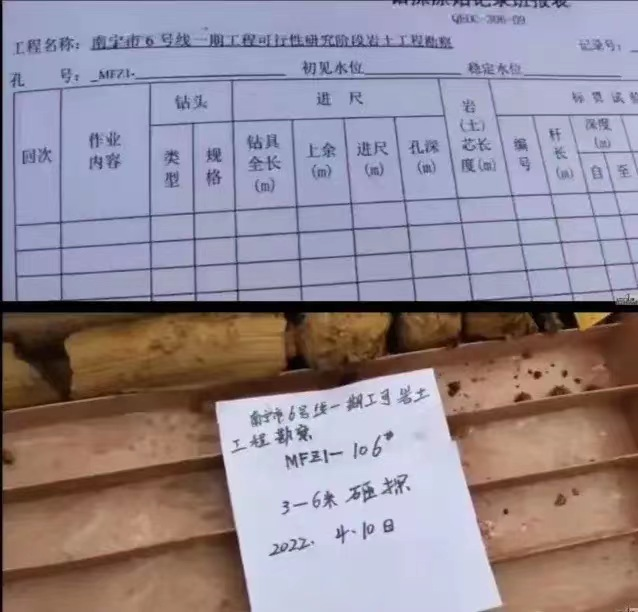 QEOC-306-09
工程名称：南宁市6号线一期工程可行性研究阶段岩土工程勘察
记录号：
孔 号：MFZ1- 初见水位 稳定水位
回次 作业内容 钻头 进尺 岩（土）芯长度(m) 标贯试验
类型 规格 钻具全长(m) 上余(m) 进尺(m) 孔深(m) 编号 杆长(m) 深度(m)
自 至
南宁市6号线一期工可岩土
工程勘察
MFZ1-106#
3-6米
2022.4.10日